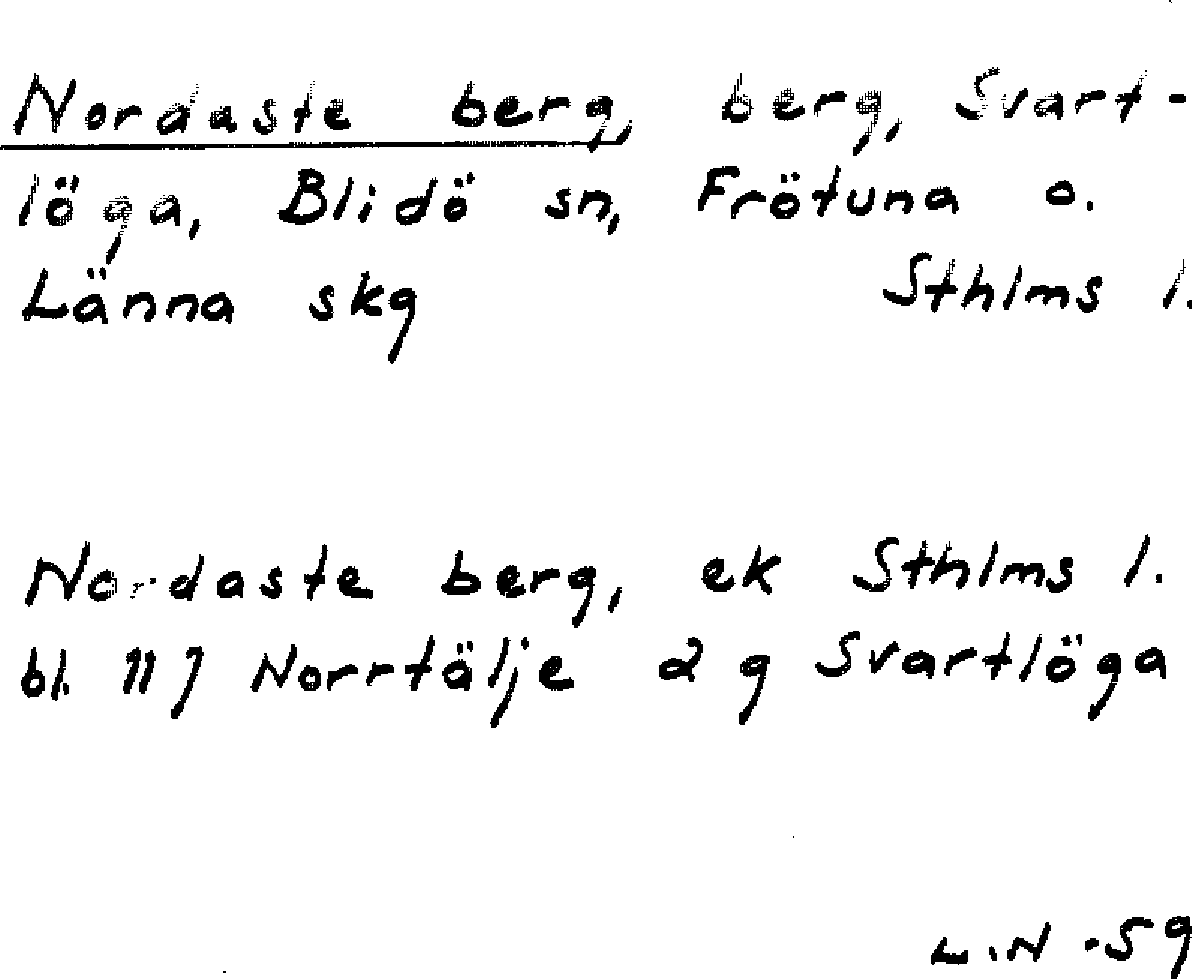 Nordaste berg, berg, Svart-
löga, Blidö sn, Frötuna o.
Länna skg Sthlms l.
Nordaste berg, ek Sthlms l.
bl. 117 Norrtälje 2 g Svartlöga
L.N -59